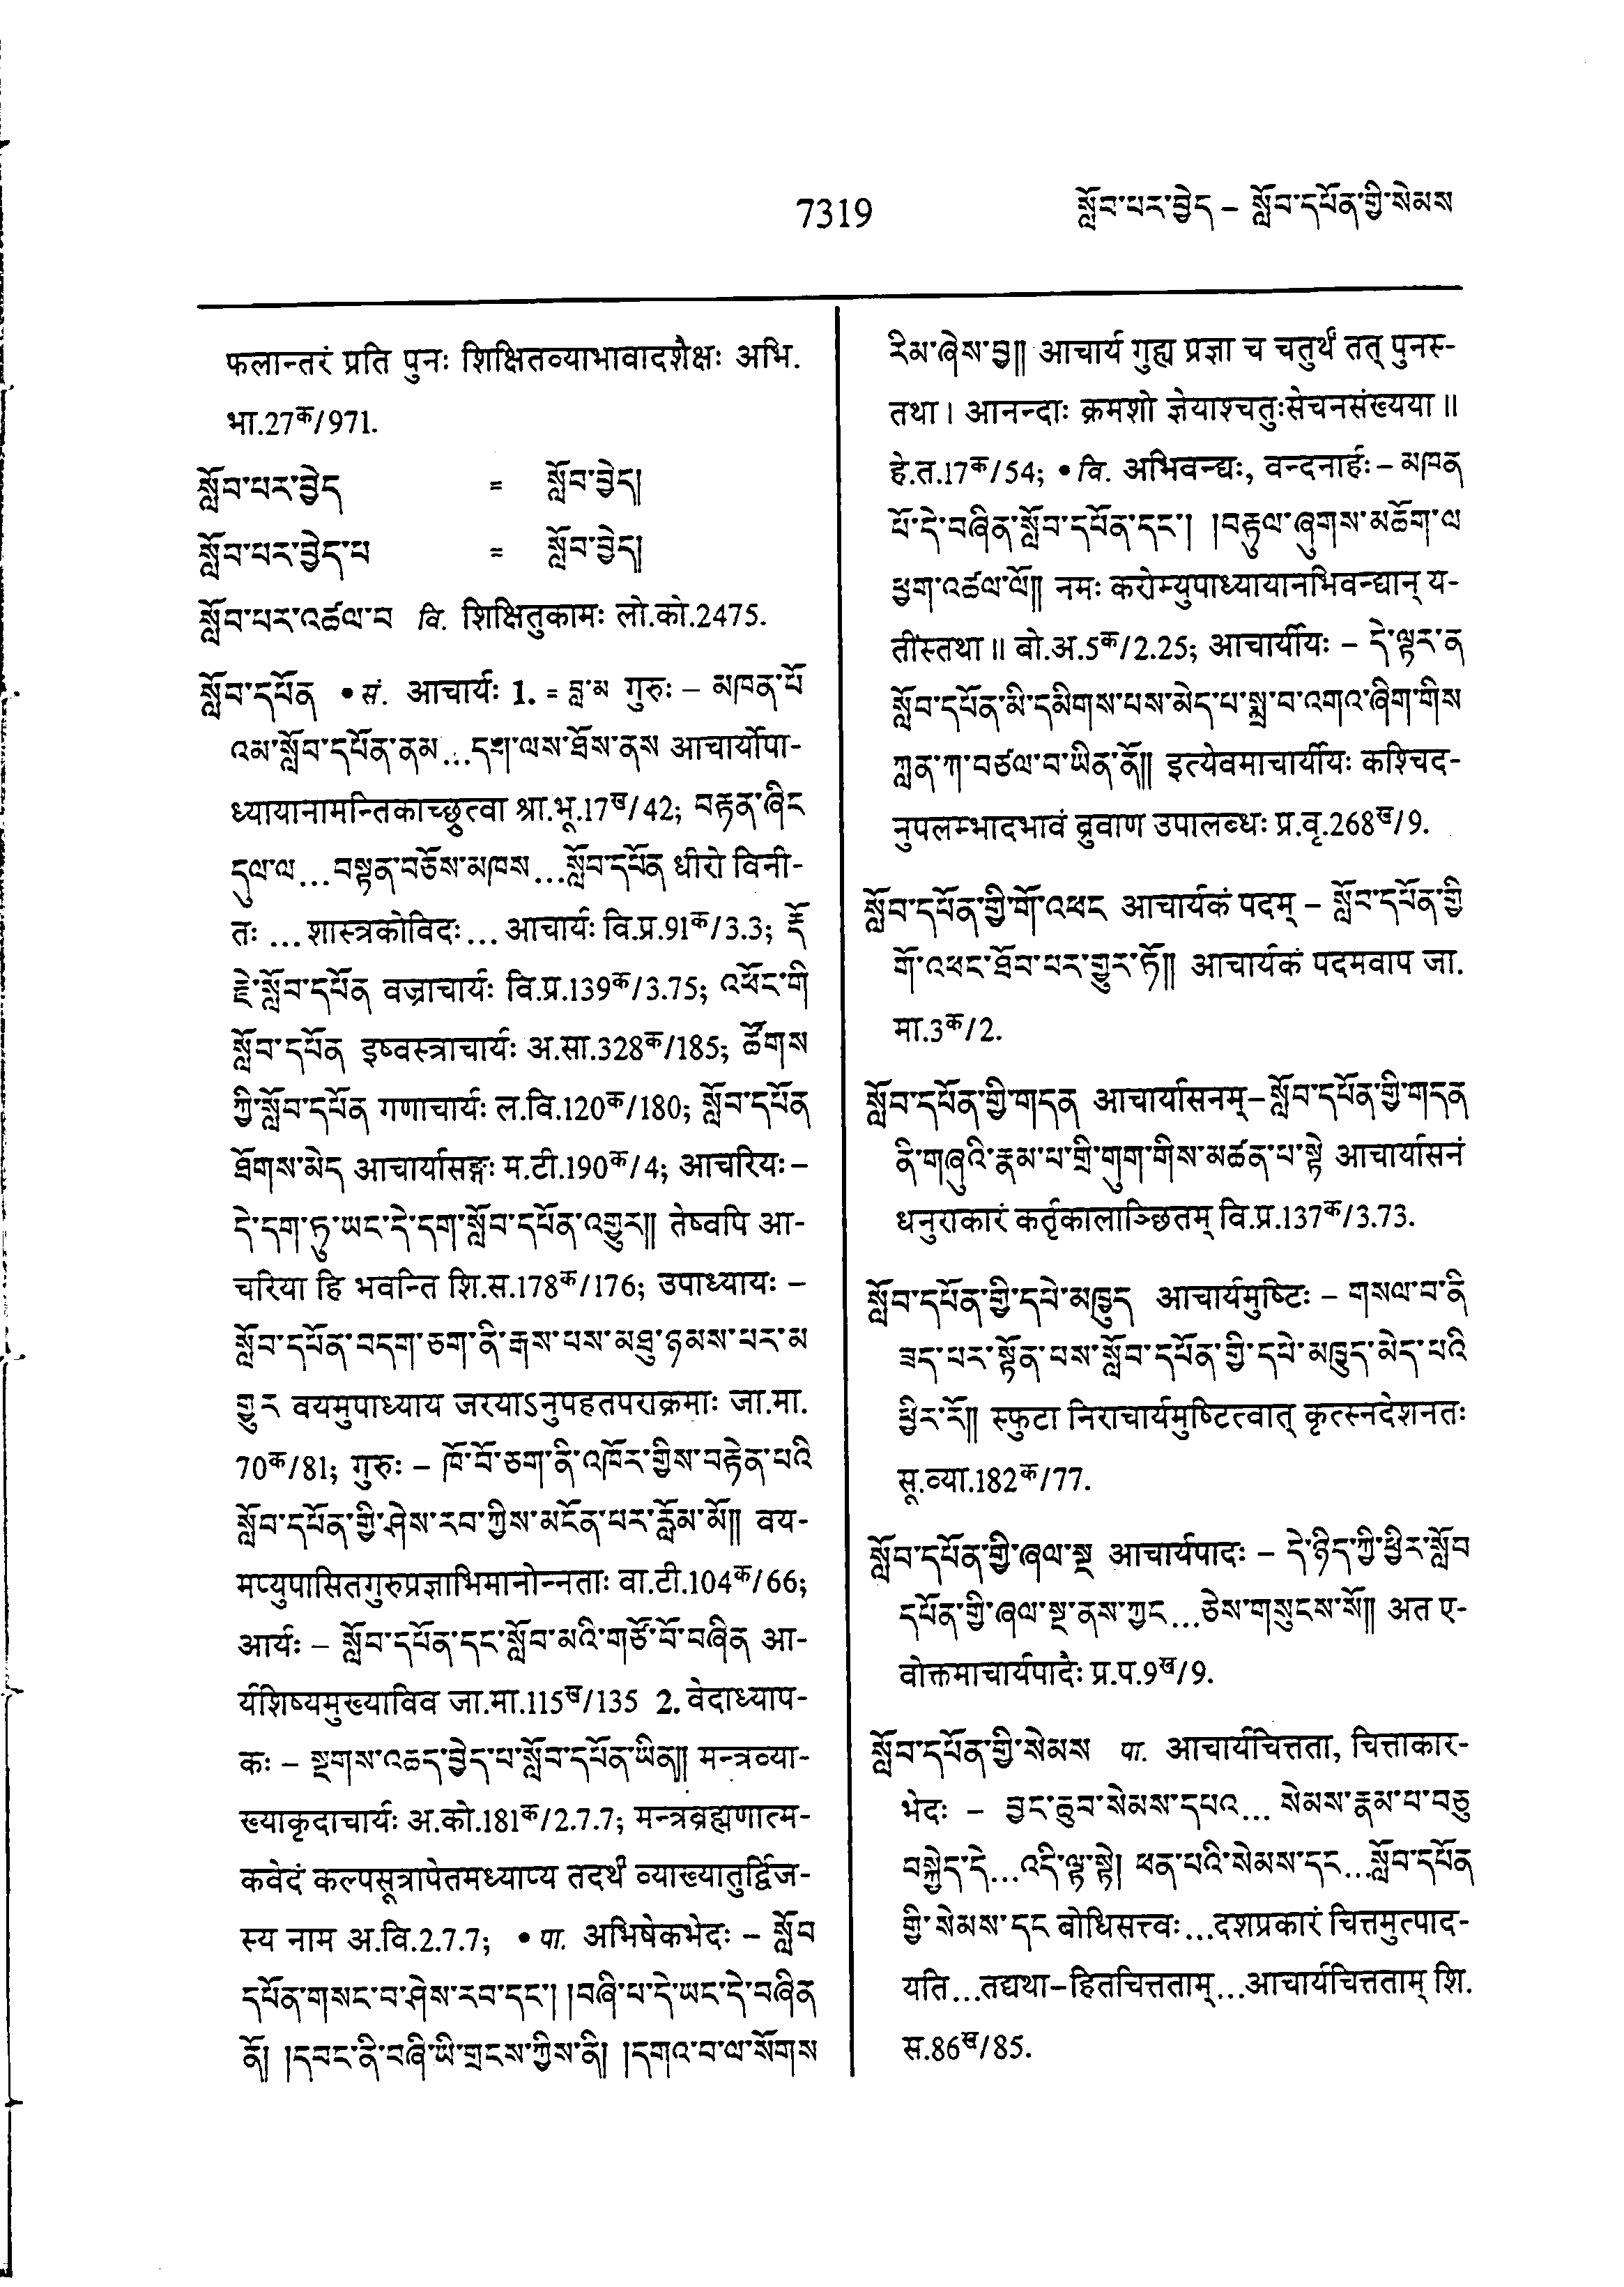 7319
སློབ་པར་བྱེད – སློབ་དཔོན་གྱི་སེམས
फलान्तरं प्रति पुनः शिक्षितव्याभावादशैक्षः अभि.
भा.27क/971.
སློབ་པར་བྱེད = སློབ་བྱེད།
སློབ་པར་བྱེད་པ = སློབ་བྱེད།
སློབ་པར་འཚལ་བ वि. शिक्षितुकामः लो.को.2475.
སློབ་དཔོན • सं. आचार्यः 1. = བླ་མ गुरुः – མཁན་པོ
འམ་སློབ་དཔོན་ནམ…དག་ལས་ཐོས་ནས आचार्योपा-
ध्यायानामन्तिकाच्छ्रुत्वा श्रा.भू.17ख/42; བརྟན་ཞིང
དུལ་ལ…བསྟན་བཅོས་མཁས…སློབ་དཔོན धीरो विनी-
तः …शास्त्रकोविदः… आचार्यः वि.प्र.91क/3.3; རྡོ
རྗེ་སློབ་དཔོན वज्राचार्यः वि.प्र.139क/3.75; འཕོང་གི
སློབ་དཔོན इष्वस्त्राचार्यः अ.सा.328क/185; ཚོགས
ཀྱི་སློབ་དཔོན गणाचार्यः ल.वि.120क/180; སློབ་དཔོན
ཐོགས་མེད आचार्यासङ्गः म.टी.190क/4; आचरियः –
དེ་དག་ཏུ་ཡང་དེ་དག་སློབ་དཔོན་འགྱུར།། तेष्वपि आ-
चरिया हि भवन्ति शि.स.178क/176; उपाध्यायः –
སློབ་དཔོན་བདག་ཅག་ནི་རྒས་པས་མཐུ་ཉམས་པར་མ
གྱུར वयमुपाध्याय जरयाऽनुपहतपराक्रमाः जा.मा.
70क/81; गुरुः – ཁོ་བོ་ཅག་ནི་འཁོར་གྱིས་བརྟེན་པའི
སློབ་དཔོན་གྱི་ཤེས་རབ་ཀྱིས་མངོན་པར་རློམ་མོ།། वय-
मप्युपासितगुरुप्रज्ञाभिमानोन्नताः वा.टी.104क/66;
आर्यः – སློབ་དཔོན་དང་སློབ་མའི་གཙོ་བོ་བཞིན आ-
र्यशिष्यमुख्याविव जा.मा.115ख/135 2. वेदाध्याप-
कः – སྔགས་འཆད་བྱེད་པ་སློབ་དཔོན་ཡིན།། मन्त्रव्या-
ख्याकृदाचार्यः अ.को.181क/2.7.7; मन्त्रब्रह्मणात्म-
कवेदं कल्पसूत्रापेतमध्याप्य तदर्थं व्याख्यातुर्द्विज-
स्य नाम अ.वि.2.7.7; • पा. अभिषेकभेदः – སློབ
དཔོན་གསང་བ་ཤེས་རབ་དང་། །བཞི་པ་དེ་ཡང་དེ་བཞིན
ནོ། །དབང་ནི་བཞི་ཡི་གྲངས་ཀྱིས་ནི། །དགའ་བ་ལ་སོགས
རིམ་ཞེས་བྱ།། आचार्य गुह्य प्रज्ञा च चतुर्थं तत् पुनस्-
तथा। आनन्दाः क्रमशो ज्ञेयाश्चतुःसेचनसंख्यया॥
हे.त.17क/54; • वि. अभिवन्द्यः, वन्दनार्हः – མཁན
པོ་དེ་བཞིན་སློབ་དཔོན་དང་། །བརྟུལ་ཞུགས་མཆོག་ལ
ཕྱག་འཚལ་ལོ།། नमः करोम्युपाध्यायानभिवन्द्यान् य-
तींस्तथा॥ बो.अ.5क/2.25; आचार्यीयः – དེ་ལྟར་ན
སློབ་དཔོན་མི་དམིགས་པས་མེད་པ་སྨྲ་བ་འགའ་ཞིག་གིས
ཀླན་ཀ་བཙལ་བ་ཡིན་ནོ།། इत्येवमाचार्यीयः कश्चिद-
नुपलम्भादभावं ब्रुवाण उपालब्धः प्र.वृ.268ख/9.
སློབ་དཔོན་གྱི་གོ་འཕང आचार्यकं पदम् – སློབ་དཔོན་གྱི
གོ་འཕང་ཐོབ་པར་གྱུར་ཏོ།། आचार्यकं पदमवाप जा.
मा.3क/2.
སློབ་དཔོན་གྱི་གདན आचार्यासनम् – སློབ་དཔོན་གྱི་གདན
ནི་གཞུའི་རྣམ་པ་གྲི་གུག་གིས་མཚན་པ་སྟེ आचार्यासनं
धनुराकारं कर्तृकालाञ्छितम् वि.प्र.137क/3.73.
སློབ་དཔོན་གྱི་དཔེ་མཁྱུད आचार्यमुष्टिः – གསལ་བ་ནི
ཟད་པར་སྟོན་པས་སློབ་དཔོན་གྱི་དཔེ་མཁྱུད་མེད་པའི
ཕྱིར་རོ།། स्फुटा निराचार्यमुष्टित्वात् कृत्स्नदेशनतः
सू.व्या.182क/77.
སློབ་དཔོན་གྱི་ཞལ་སྔ आचार्यपादः – དེ་ཉིད་ཀྱི་ཕྱིར་སློབ
དཔོན་གྱི་ཞལ་སྔ་ནས་ཀྱང…ཅེས་གསུངས་སོ།། अत ए-
वोक्तमाचार्यपादैः प्र.प.9ख/9.
སློབ་དཔོན་གྱི་སེམས पा. आचार्यचित्तता, चित्ताकार-
भेदः – བྱང་ཆུབ་སེམས་དཔའ…སེམས་རྣམ་པ་བཅུ
བསྐྱེད་དེ…འདི་ལྟ་སྟེ། ཕན་པའི་སེམས་དང…སློབ་དཔོན
གྱི་སེམས་དང बोधिसत्त्वः…दशप्रकारं चित्तमुत्पाद-
यति…तद्यथा–हितचित्तताम्…आचार्यचित्तताम् शि.
स.86ख/85.